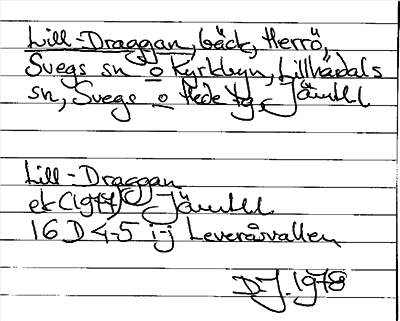 Lill-Draggan, bäck, Herrö,
Svegs sn o Kyrkbyn, Lillhärdals
sn, Svegs o Hede tg, Jämtl
Lill-Draggan
ek (1977) Jämtl.
16 D 4-5 i-j Leveråsvallen
D-J. 1978